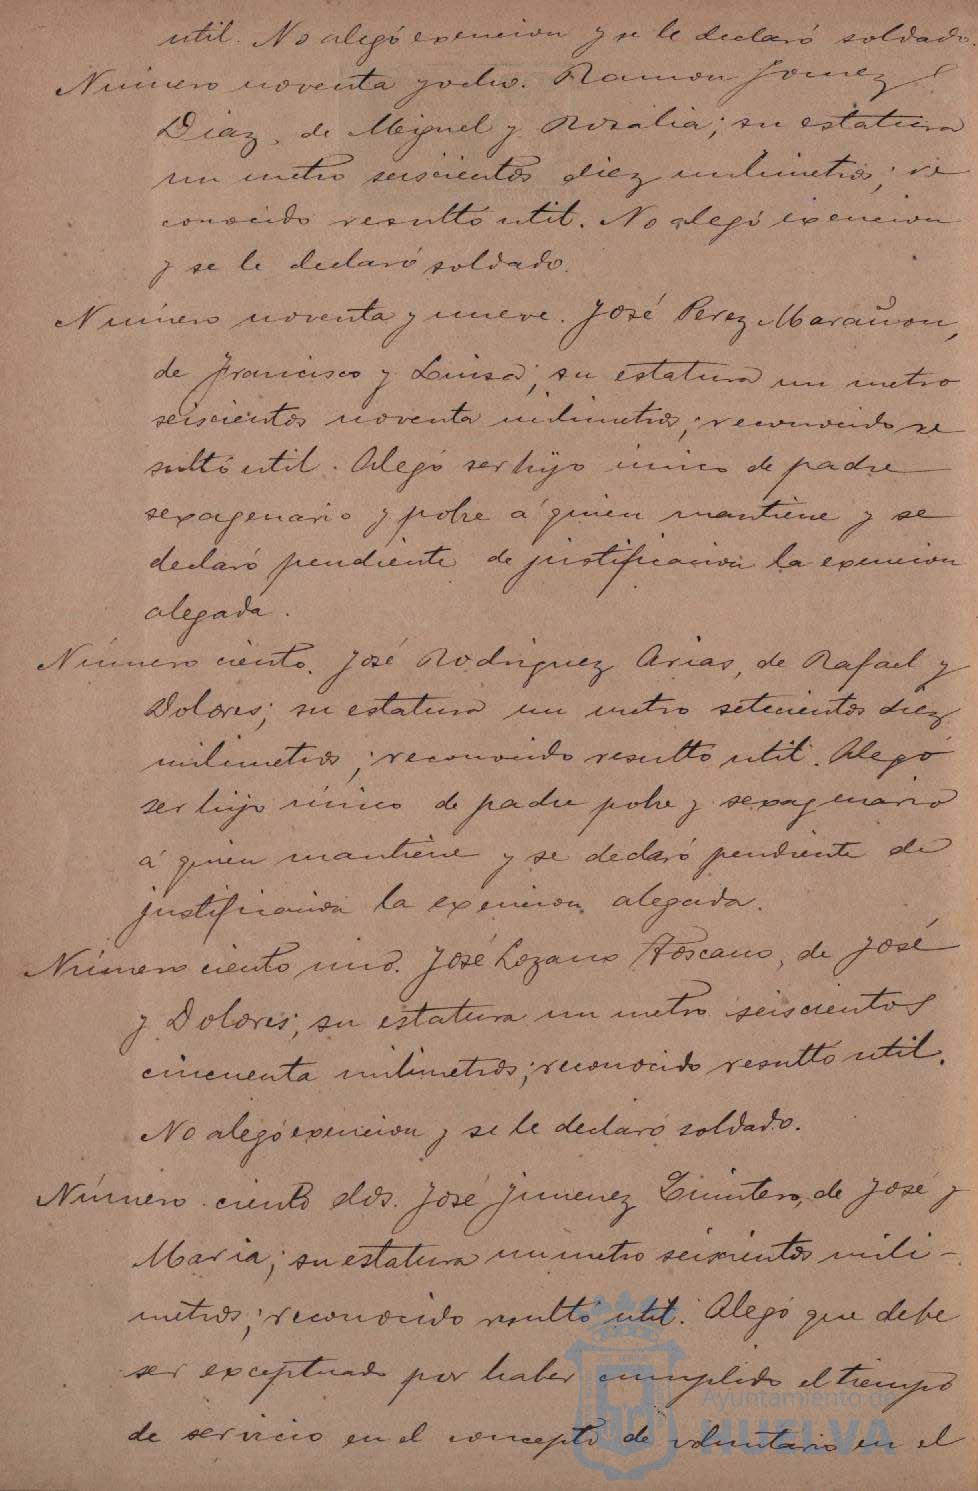 util. No alegó exencion y se le declaró soldado.
Número noventa y ocho. Ramon Gomez
Diaz, de Miguel y Rosalia; su estatura
un metro seiscientos diez milimetros; re
conocido resultó util. No alegó exencion
y se le declaró soldado.
Número noventa y nueve. José Perez Marañon,
de Francisco y Luisa; su estatura un metro
seiscientos noventa milimetros; reconocido re
sultó util. Alegó ser hijo único de padre
sexagenario y pobre á quien mantiene y se
declaró pendiente de justificacion la exencion
alegada.
Número ciento. José Rodriguez Arias, de Rafael y
Dolores; su estatura un metro setecientos diez
milimetros; reconocido resultó util. Alegó
ser hijo único de padre pobre y sexagenario
á quien mantiene y se declaró pendiente de
justificacion la exencion alegada.
Número ciento uno. José Lozano Toscano, de José
y Dolores; su estatura un metro seiscientos
cincuenta milimetros; reconocido resultó util.
No alegó exencion y se le declaró soldado.
Número ciento dos. José Jimenez Quintero, de José y
Maria; su estatura un metro seiscientos mili-
metros; reconocido resultó util. Alegó que debe
ser exceptuado por haber cumplido el tiempo
de servicio en el concepto de voluntario en el
Ayuntamiento de
HUELVA